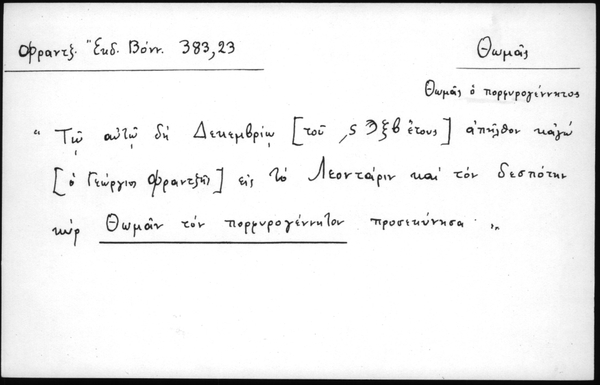 Φραντζ. Ἔκδ. Βόνν. 383,23
Θωμᾶς
Θωμᾶς ὁ πορφυρογέννητος
" Τῷ αὐτῷ δὴ Δεκεμβρίῳ [τοῦ ͵ςϠξβ ἔτους] ἀπῆλθον κἀγώ
[ὁ Γεώργιος Φραντζῆς] εἰς τὸ Λεοντάριν καὶ τὸν δεσπότην
κὺρ Θωμᾶν τὸν πορφυρογέννητον προσεκύνησα „